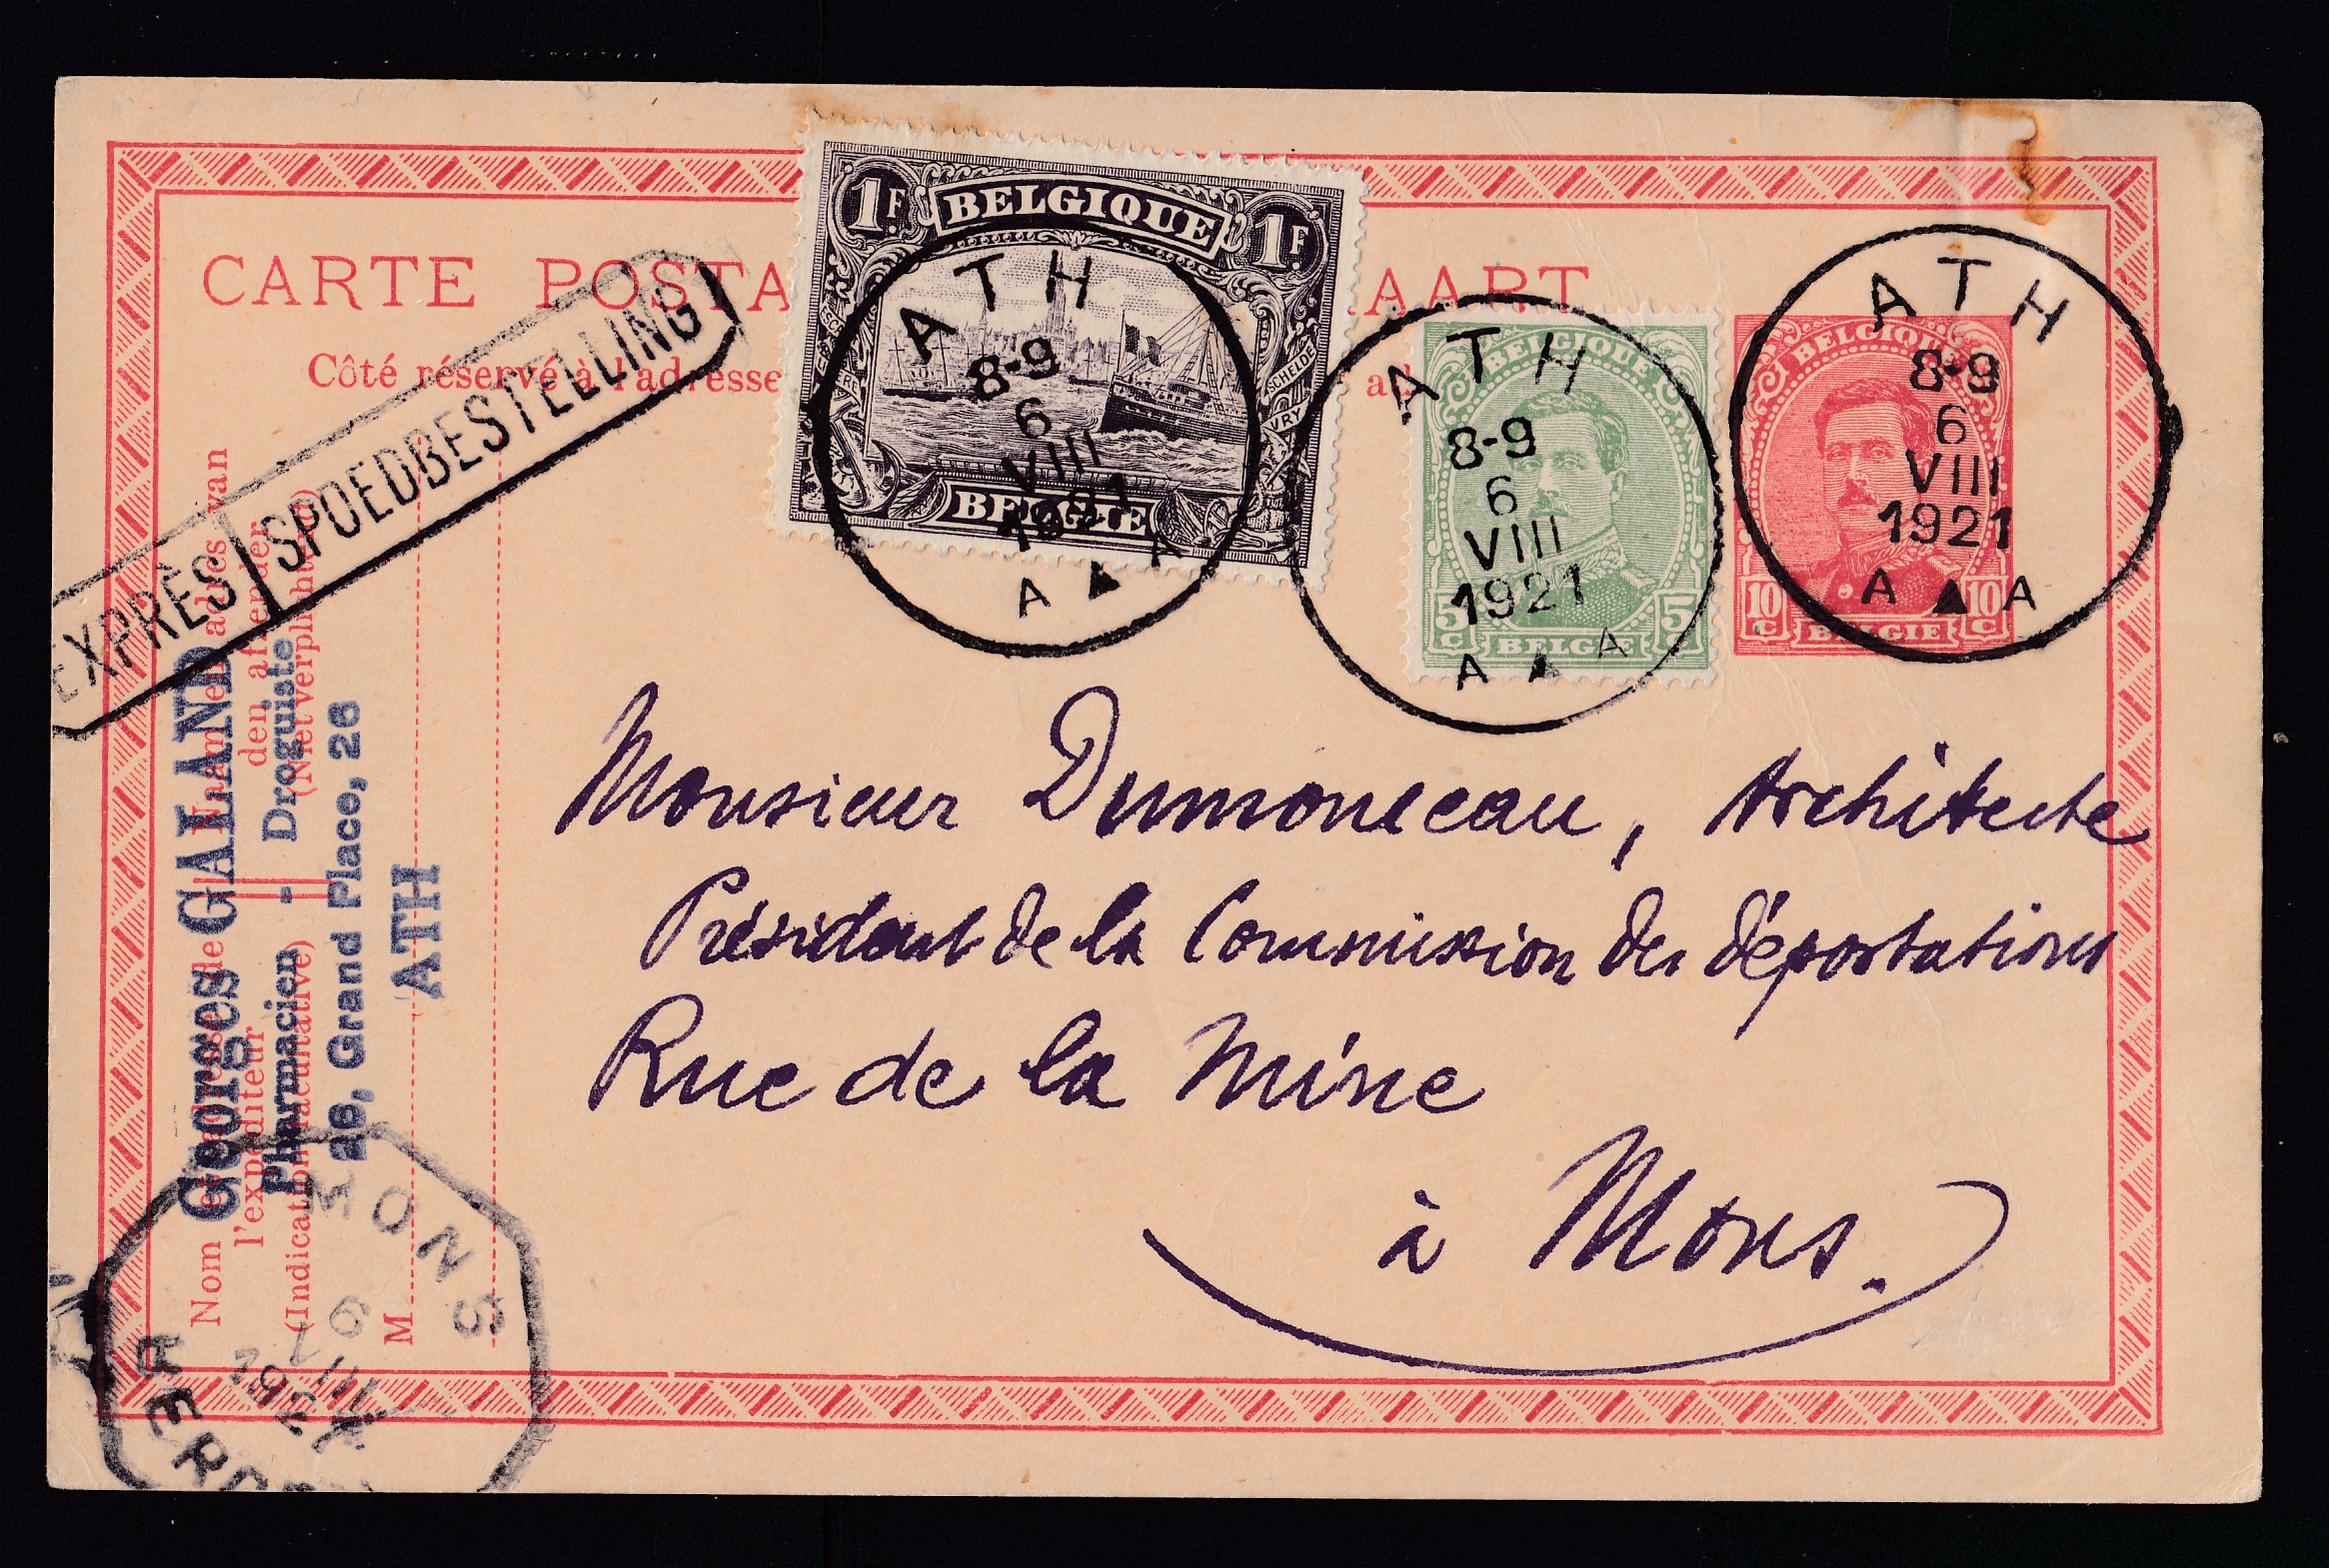 CARTE POSTA
AART
Côté réservé à l'adresse
EXPRÈS SPOEDBESTELLING
1F. BELGIQUE 1F.
SCHELDE
VRY
BELGIE
ATH
8-9
6
VIII
1921
A A
BELGIQUE
5C BELGIE 5C
ATH
8-9
6
VIII
1921
A A
BELGIQUE
10C BELGIE 10C
ATH
8-9
6
VIII
1921
A A
Monsieur Dumonceau, Architecte
Président de la Commission des déportations
Rue de la Mine
à Mons.
Georges GALAND
Pharmacien - Droguiste
26, Grand Place, 26
ATH
Nom et adresse de
l'expéditeur
(Indication facultative)
Naam en adres van
den afzender
(Niet verplichtend)
M
MONS
6
VIII